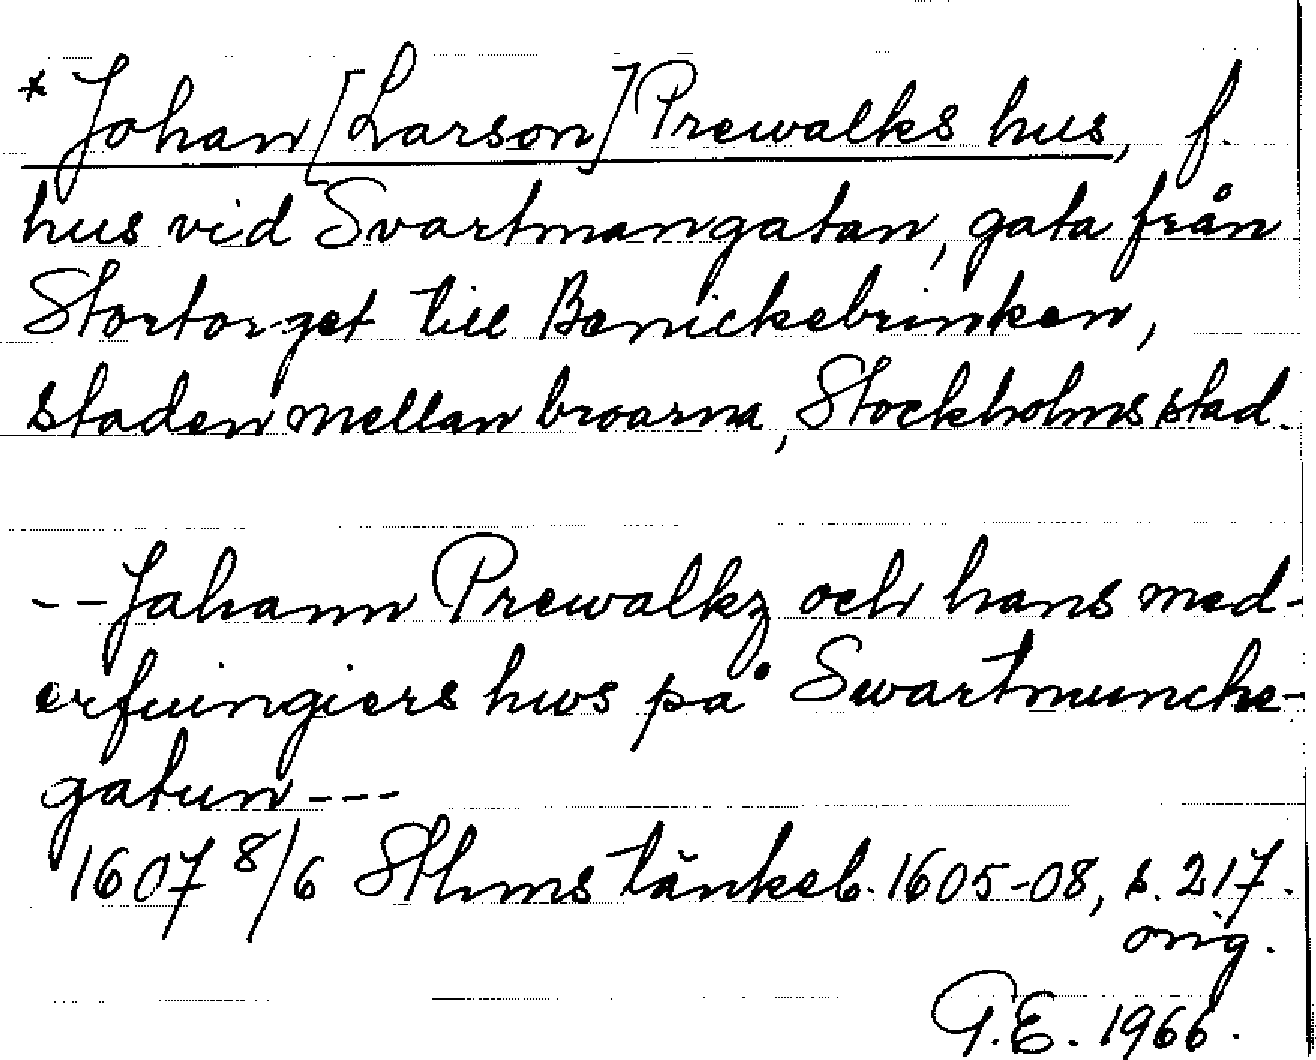 * Johan [Larson] Prewalks hus, f.
hus vid Svartmangatan, gata från
Stortorget till Benickebrinken,
staden mellan broarna, Stockholms stad.
-- Johann Prewalkz och hans med-
erfuingiers hws på Swartmunche-
gatun ---
1607 8/6 Sthms tänkeb. 1605-08, s. 217.
orig.
G.E. 1966.